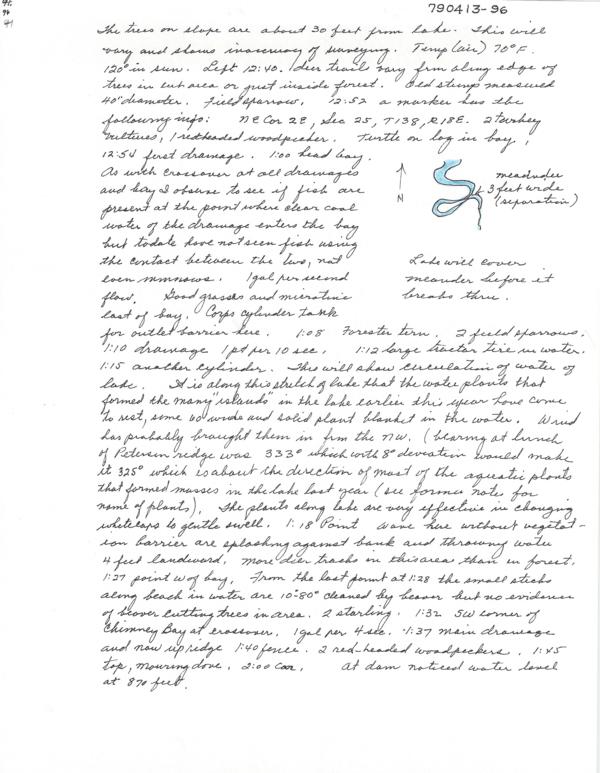 790413-96
The trees on slope are about 30 feet from lake. This will
vary and shows inaccuracy of surveying. Temp (air) 70°F.
120° in sun. Left 12:40. deer trail vary frm along edge of
trees in cut area or just inside forest. Old stump measured
40" diameter. Field sparrow. 12:52 a marker has the
following info: NE Cor 2E, Sec 25, T138, R18E. 2 turkey
vultures, 1 redheaded woodpecker. Turtle on log in bay,
12:54 first drainage. 1:00 head bay.
As with crossover at all drainages
and bay I observe to see if fish are
present at the point where clear cool
water of the drainage enters the bay
but todate have not seen fish using
the contact between the two, not
even minnows. 1 gal per second
flow. Good grasses and
east of bay. Corps cylinder tank
for outlet barrier here. 1:08 Forester tern. 2 field sparrows.
N
meander
3 feet wide
(separation)
Lake will cover
meander before it
breaks thru.
1:10 drainage 1 pt per 10 sec. 1:12 large tractor tire in water.
1:15 another cylinder. This will show circulation of water of
lake. It is along this stretch of lake that the water plants that
formed the many "islands" in the lake earlier this year have come
to rest, some 60' wide and solid plant blanket in the water. Wind
has probably brought them in frm the NW. (bearing at lunch
of Peterson ridge was 333° which with 8° deviation would make
it 325° which is about the direction of most of the aquatic plants
that formed masses in the lake last year (see former notes for
name of plants). The plants along lake are very effective in changing
whitecaps to gentle swell. 1:18 Point wave here without vegetat-
ion barrier are splashing against bank and throwing water
4 feet landward. more deer tracks in this area than in forest.
1:27 point W of bay. From the last point at 1:28 the small sticks
along beach in water are 10-80° cleaned by beaver but no evidence
of beaver cutting trees in area. 2 starling. 1:32 SW corner of
Chimney Bay at crossover. 1 gal per 4 sec. 1:37 main drainage
and now up ridge 1:40 fence. 2 red-headed woodpeckers. 1:45
top, mourning dove. 2:00 car. At dam noticed water level
at 870 feet.